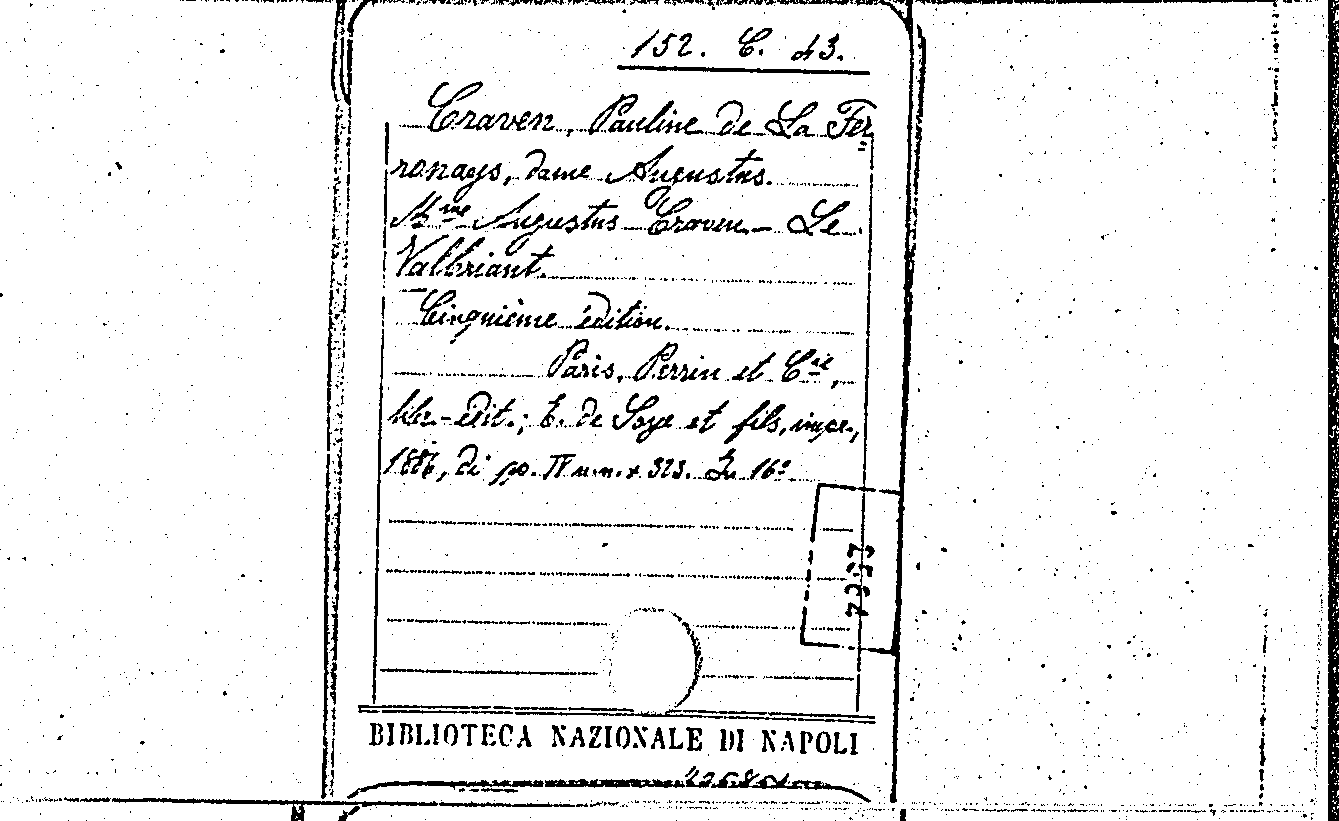 152. C. 43.
Craven, Pauline de La Fer
ronays, dame Augustus.
Mme Augustus Craven - Le
Valbriant.
Cinquième édition.
Paris, Perrin et Cie,
libr.-édit.; E. de Soye et fils, impr.,
1886, di pp. IV n.n. + 323. In 16º
BIBLIOTECA NAZIONALE DI NAPOLI